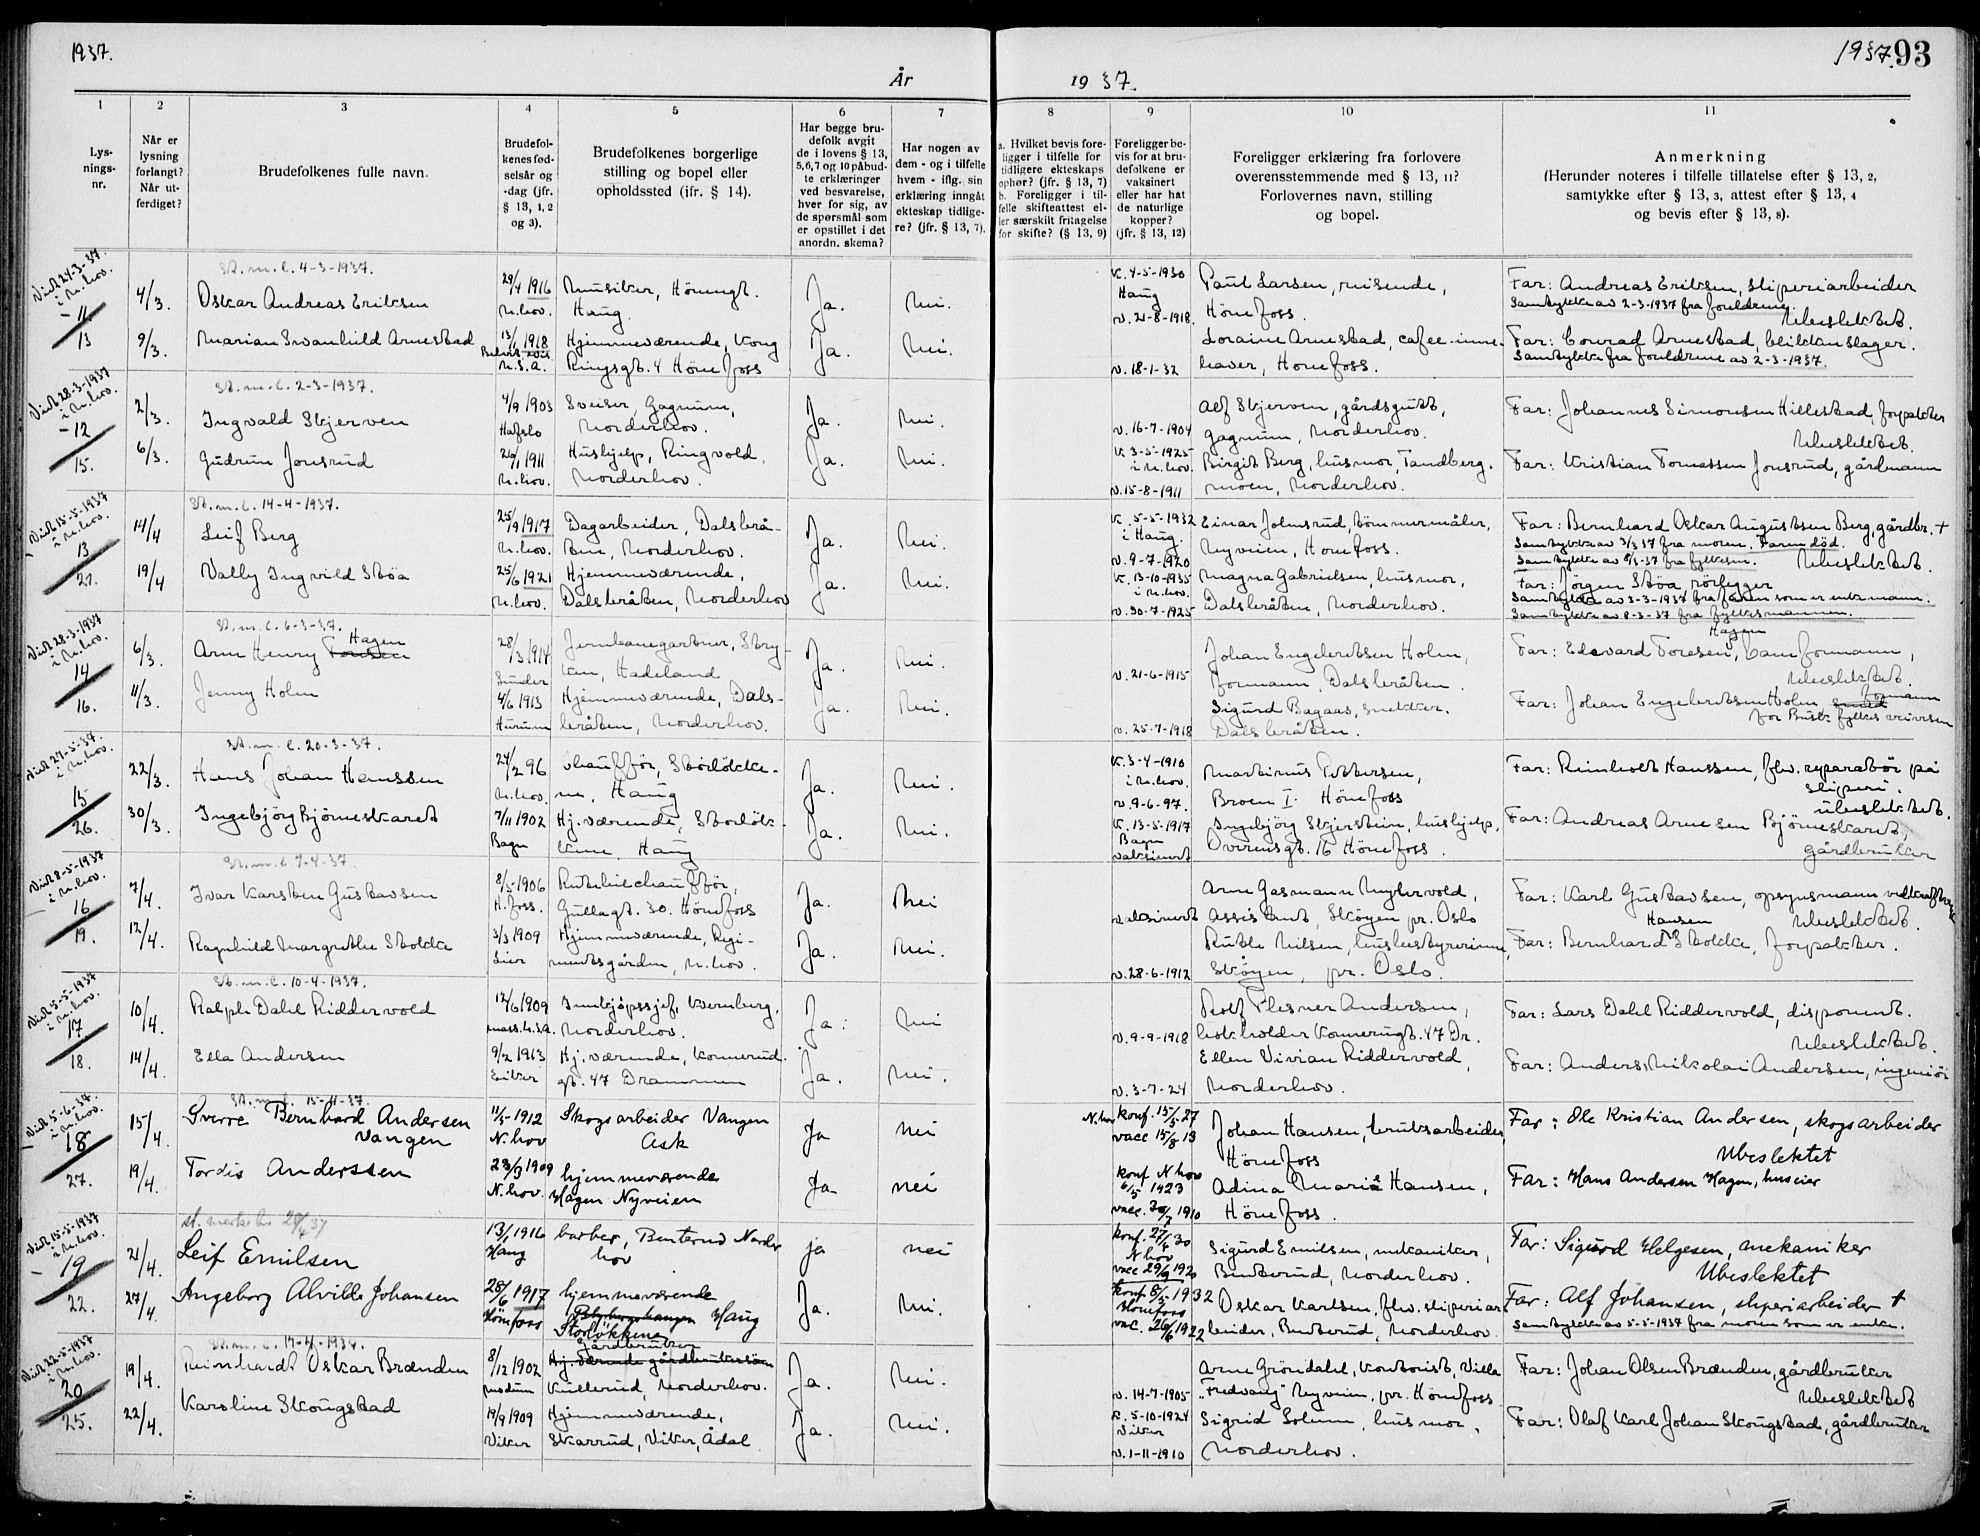 1937.
År
1937.
1937. 93
1
2
3
4
5
6
7
8
9
10
11
Lys-
nings-
nr.
Når er
lysning
forlangt?
Når ut-
ferdiget?
Brudefolkenes fulle navn.
Brudefol-
kenes fød-
selsår og
-dag (jfr.
§ 13, 1, 2
og 3).
Brudefolkenes borgerlige
stilling og bopel eller
opholdssted (jfr. § 14).
Har begge bru-
defolk avgit
de i lovens § 13,
5,6,7 og 10 påbud-
te erklæringer
ved besvarelse,
hver for sig, av
de spørsmål som
er opstillet i det
anordn. skema?
Har nogen av
dem - og i tilfelle
hvem - iflg. sin
erklæring inngåt
ekteskap tidlige-
re? (jfr. § 13, 7).
a. Hvilket bevis fore-
ligger i tilfelle for
tidligere ekteskaps
ophør? (jfr. § 13, 7)
b. Foreligger i til-
felle skifteattest el-
ler særskilt fritagelse
for skifte? (§ 13, 9)
Foreligger be-
vis for at bru-
defolkene er
vaksinert
eller har hat
de naturlige
kopper?
(jfr. § 13, 12)
Foreligger erklæring fra forlovere
overensstemmende med § 13, 11?
Forlovernes navn, stilling
og bopel.
Anmerkning
(Herunder noteres i tilfelle tillatelse efter § 13, 2,
samtykke efter § 13, 3, attest efter § 13, 4
og bevis efter § 13, 8).
Viet 24-3-37.
i N.hov.
11
13
St.m.l. 4-3-1937.
4/3. Oskar Andreas Eriksen 29/4 1916 Musiker, Hønengt. Ja. Nei.
N.hov. Haug.
9/3. Marian Svanhild Arnestad 13/1 1918 Hjemmeværende, Kong Ja. Nei.
U.S.A. Ringsgt. 4 Hønefoss
K. 4-5-1930 Paul Larsen, reisende,
Haug
v. 21-8-1918. Hønefoss.
Loraine Arnestad, cafee-inne-
v. 18-1-32 haver, Hønefoss.
Far: Andreas Eriksen, sliperiarbeider
Samtykke av 2-3-1937 fra foreldrene.
Ubeslektet.
Far: Conrad Arnestad, blikkenslager.
Samtykke fra foreldrene av 2-3-1937.
Viet 28-3-1937
i N.hov.
12
15.
St.m.l. 2-3-1937.
2/3. Ingvald Skjerven 4/9 1903 Sveiser, Gagnum, Ja. Nei.
Hafslo Norderhov.
6/3. Gudrun Jonsrud 26/1 1911 Hushjelp, Ringvold, Ja. Nei.
N.hov. Norderhov.
Alf Skjerven, gårdsgutt,
v. 16-7-1904 Gagnum, Norderhov.
K. 3-5-1925 Birgit Berg, husmor, Tandberg-
i N.hov.
v. 15-8-1911 moen, Norderhov.
Far: Johannes Simonsen Hillestad, forpakter
Ubeslektet.
Far: Kristian Tomassen Jonsrud, gårdmann
Viet 15-5-1937
i N.hov.
13
21.
St.m.l. 14-4-1937.
14/4 Leif Berg 25/9 1917 Dagarbeider, Dalsbrå- Ja. Nei.
N.hov. ten, Norderhov.
19/4 Vally Ingvild Støa 25/6 1921 Hjemmeværende, Ja. Nei.
N.hov. Dalsbråten, Norderhov
K. 5-5-1932 Einar Johnsrud, tømmermåler,
i Haug.
v. 9-7-1920 Nyveien, Hønefoss.
K. 13-10-1935 Magna Gabrielsen, husmor,
i N.hov.
v. 30-7-1925 Dalsbråten, Norderhov.
Far: Bernhard Oskar Augustsen Berg, gårdbr. +
Samtykke av 3/3 37 fra moren. Faren død.
Samtykke av 8/3-37 fra fylkesm. Ubeslektet.
Far: Jørgen Støa rørlegger
Samtykke av 3-3-1937 fra faren som er enkemann.
Samtykke av 8-3-37 fra fylkesmannen.
Viet 28-3-1937
i N.hov.
14
16.
St.m.l. 6-3-37.
Hagen
6/3. Arne Henry Toresen 28/3 1914 Jernbanegartner, Stry- Ja. Nei.
ken, Hadeland
11/3. Jenny Holm 4/6 1913 Hjemmeværende, Dals- Ja. Nei.
Hurum bråten, Norderhov.
Johan Engebretsen Holm,
v. 21-6-1915 formann, Dalsbråten.
Sigurd Bagaas, snekker.
v. 25-7-1918 Dalsbråten.
Hagen
Far: Edvard Toresen, baneformann,
Ubeslektet.
Far: Johan Engebretsen Holm smed formann
for Busk. fylkes veivesen
Viet 27-5-37.
i N.hov.
15
26.
St.m.l. 20-3-37.
22/3. Hans Johan Hanssen 24/2 96 Chauffør, Storløkke- Ja. Nei.
N.hov. n, Haug
30/3. Ingebjørg Bjørneskaret 7/11 1902 Hj.værende, Storløk- Ja. Nei.
Bagn ken, Haug
K. 3-4-1910 Martinus Pettersen,
i N.hov.
v. 9-6-97. Broen I. Hønefoss
K. 13-5-1917 Ingebjørg Skjerstein, hushjelp,
Bagn
vaksinert Owrensgt. 16 Hønefoss.
Far: Reinholt Hanssen, flw. reparatør på
sliperi.
ubeslektet.
Far: Andreas Arnesen Bjørneskaret,
gårdbruker
Viet 8-5-1937
i N.hov.
16
19.
St.m.l. 7-4-37.
7/4. Ivar Karsten Gustavsen 8/5-1906 Rutebilchauffør, Ja. Nei
H.foss. Gullagt. 30. Hønefoss
12/4. Ragnhild Margrethe Stokke 3/3 1909 Hjemmeværende, Regi- Ja. Nei.
Lier mentsgården, N.hov.
Arne Gasmann Myhrvold,
vaksinert Assistent, Skøyen pr. Oslo
Ruth Nilsen, husbestyrerinne
v. 28-6-1912 Skøyen, pr. Oslo.
Far: Karl Gustavsen, opsynsmann ved kraftverk
Hansen Ubeslektet.
Far: Bernhard Stokke, forpakter.
Viet 15-5-1937
i N.hov.
17
18.
St.m.l. 10-4-1937.
10/4. Ralph Dahl Riddervold 12/6 1909 Innkjøpssjef, Kvernberg, Ja. Nei
Mass. U.S.A. Norderhov.
14/4. Ella Andersen 9/2 1913 Hj.værende, Konnerud- Ja. Nei.
Eiker gt. 47 Drammen
Rolf Plesner Andersen,
v. 9-9-1918 bokholder Konnerudgt. 47 Dr.
Ellen Vivian Riddervold,
v. 3-7-24 Norderhov.
Far: Lars Dahl Riddervold, disponent.
Ubeslektet.
Far: Anders Nikolai Andersen, ingeniør
Viet 5-6-37.
i N.hov.
18
27.
St.m.l. 15-4-37.
15/4. Sverre Bernhard Andersen 11/5-1912 Skogsarbeider Vangen Ja nei
Vangen N.hov Ask
19/4. Tordis Anderssen 23/9 1909 hjemmeværende Ja nei
N.hov. Hagen Nyveien
N.hov konf. 15/5-27
vacc 15/8 13 Johan Hansen, bruksarbeider
Hønefoss
konf N hov
6/5 1923 Adina Maria Hansen,
vacc. 30/7 1910 Hønefoss.
Far: Ole Kristian Andersen, skogsarbeider
Ubeslektet
Far: Hans Andersen Hagen, huseier
Viet 15-5-1937
i N.hov.
19
22.
st. merke lev 20/4 37
21/4. Leif Emilsen 13/1 1916 barber, Benterud Norder ja nei
Haug hov
27/4. Ingeborg Alvilde Johansen 28/6 1917 hjemmeværende Ja. Nei.
Hønefoss Haug
Storløkken
konf. 27/4 30
N hov Sigurd Emilsen, mekaniker,
vacc 29/9 1920 Benterud, Norderhov.
konf 8/5 1932 Oskar Karlsen, flw. sliperiar-
Hønefoss
vac. 26/6 1922 beider, Benterud, Norderhov
Far: Sigurd Helgesen, mekaniker
Ubeslektet
Far: Alf Johansen, sliperiarbeider +
Samtykke av 5-5-1937 fra moren som er enke.
Viet 22-5-1937
i N.hov.
20
25.
St.m.l. 19-4-1937.
gårdbruker
19/4. Reinhardt Oskar Brænden 8/12 1902 Hj. værende gårdbrukersøn Ja. Nei.
Modum Kullerud, Norderhov.
22/4. Karoline Skougstad 19/9 1909 Hjemmeværende, Ja. Nei.
Viker Skarrud, Viker, Ådal
Arne Grøndahl, kontorist, Villa
v. 14-7-1905 "Fredvang" Nyveien, pr. Hønefoss
K. 5-10-1924 Sigrid Solum, husmor,
Viker
v. 1-11-1910 Norderhov.
Far: Johan Olsen Brænden, gårdbruker
Ubeslektet
Far: Olaf Karl Johan Skougstad, gårdbruker